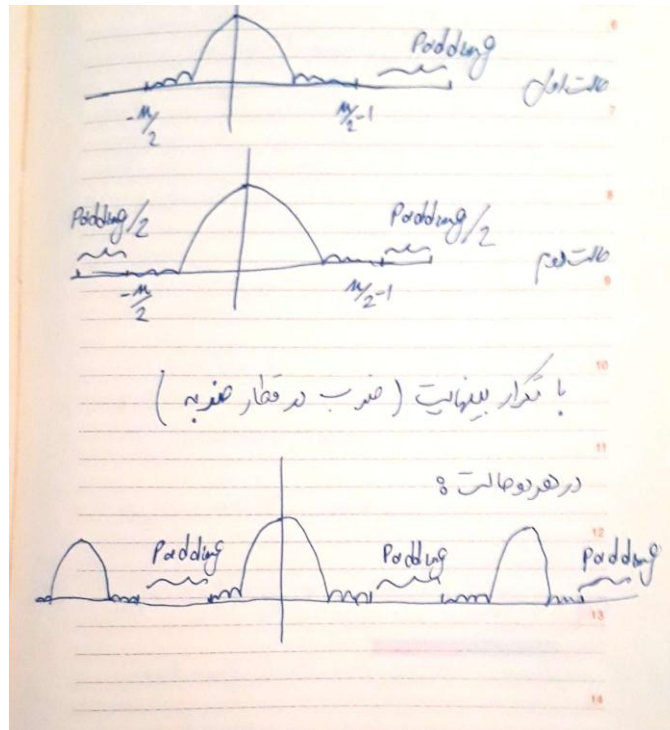 6
Padding
حالت اول
-M/2
M/2-1
7
8
Padding/2
Padding/2
حالت دوم
-M/2
M/2-1
9
10
با تکرار بینهایت (ضرب در قطار ضربه)
11
در هر دو حالت:
12
Padding
Padding
Padding
13
14